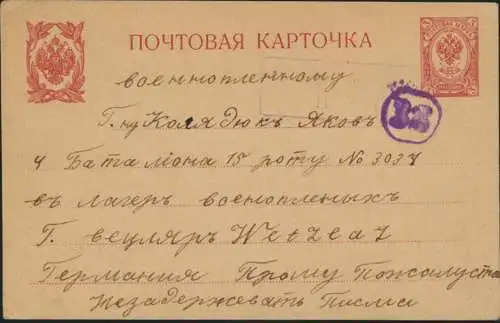 ПОЧТОВАЯ КАРТОЧКА
военнопленному
Г. ну Колядюкъ Яковъ
4 Баталіона 15 роту № 3037
въ лагеръ военопленыхъ
Г. вецляръ Wetzlar
Германия Прошу Пожалуста
Незадержевать Писма